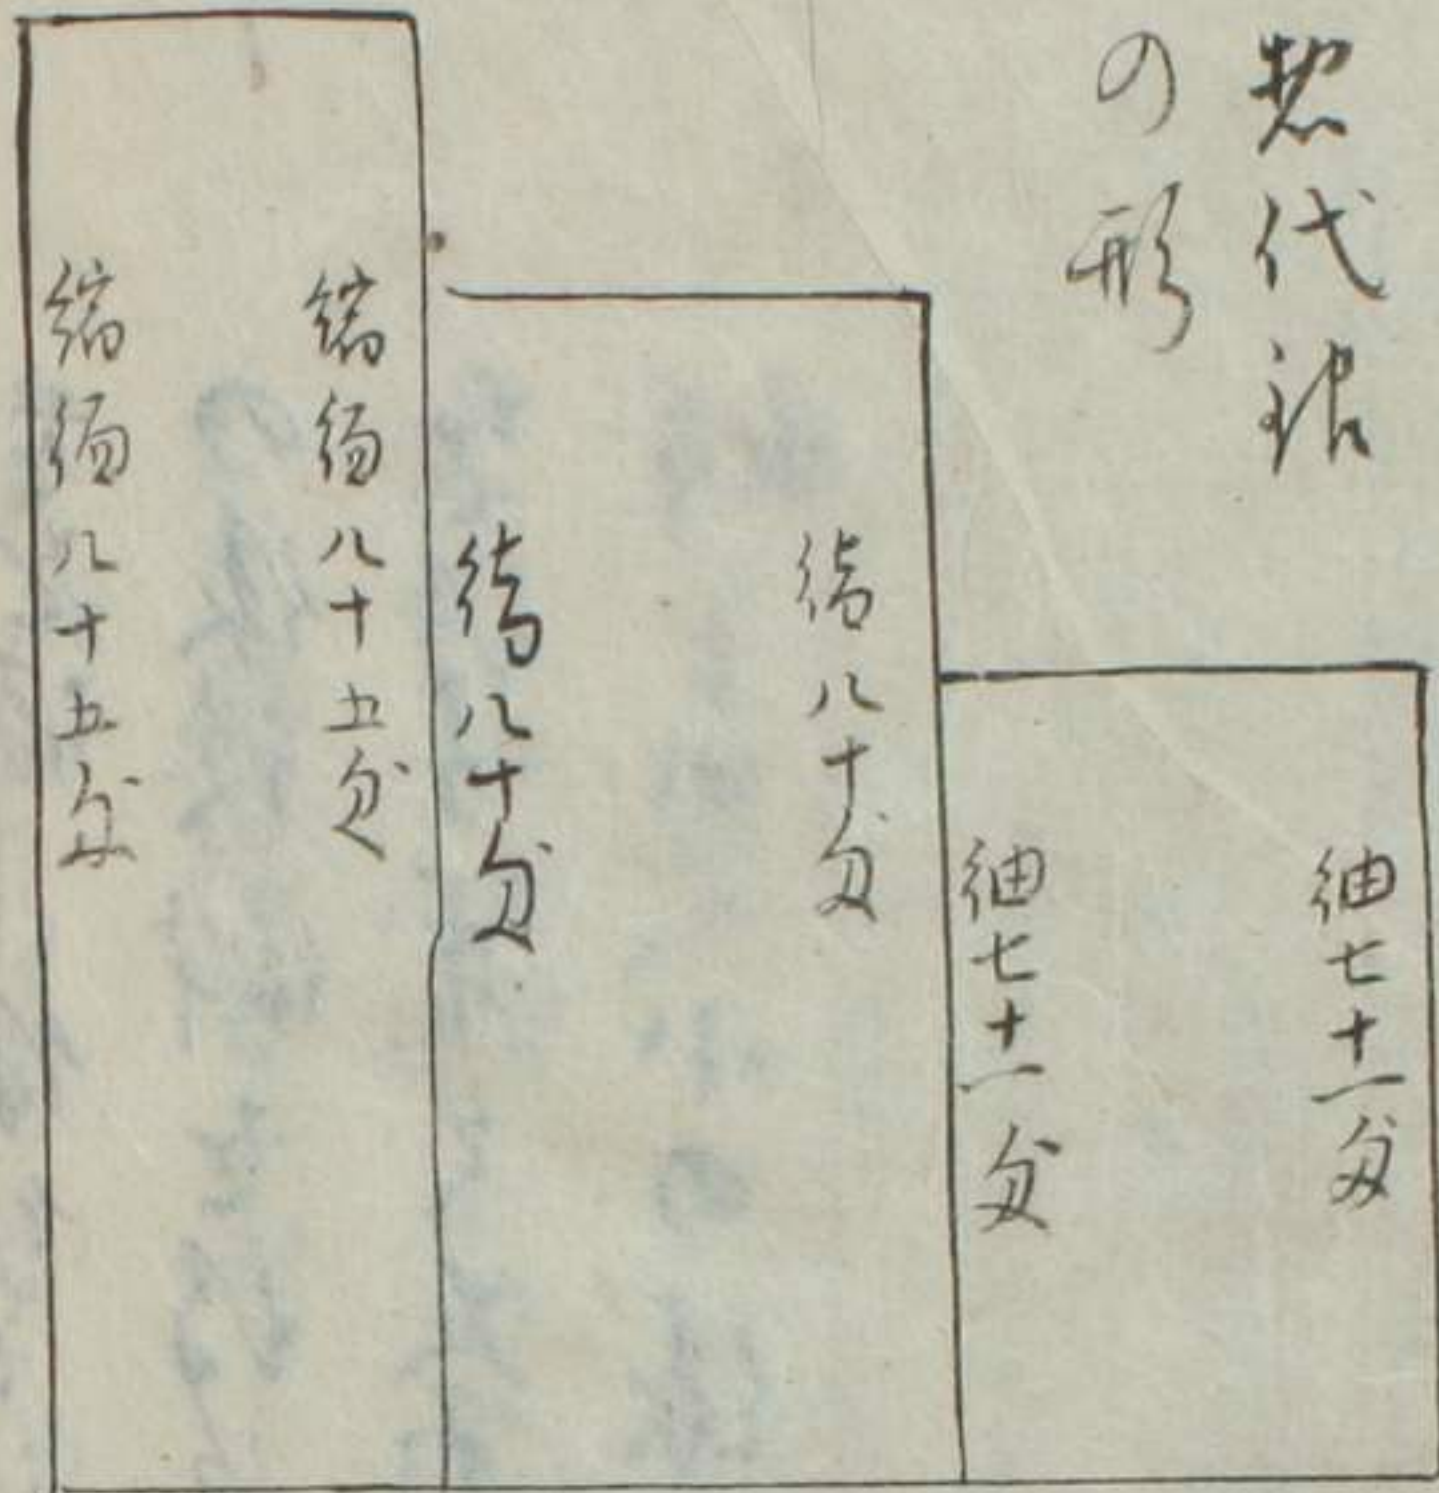 惣代銀
の形
紬七十一匁
紬七十一匁
絹八十匁
絹八十匁
縮緬八十五匁
縮緬八十五匁